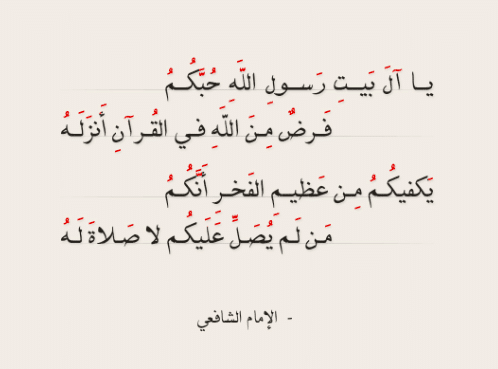 يا آلَ بَيتِ رَسولِ اللَهِ حُبَّكُمُ
فَرضٌ مِنَ اللَهِ في القُرآنِ أَنزَلَهُ
يَكفيكُمُ مِن عَظيمِ الفَخرِ أَنَّكُمُ
مَن لَم يُصَلِّ عَلَيكُم لا صَلاةَ لَهُ
- الإمام الشافعي